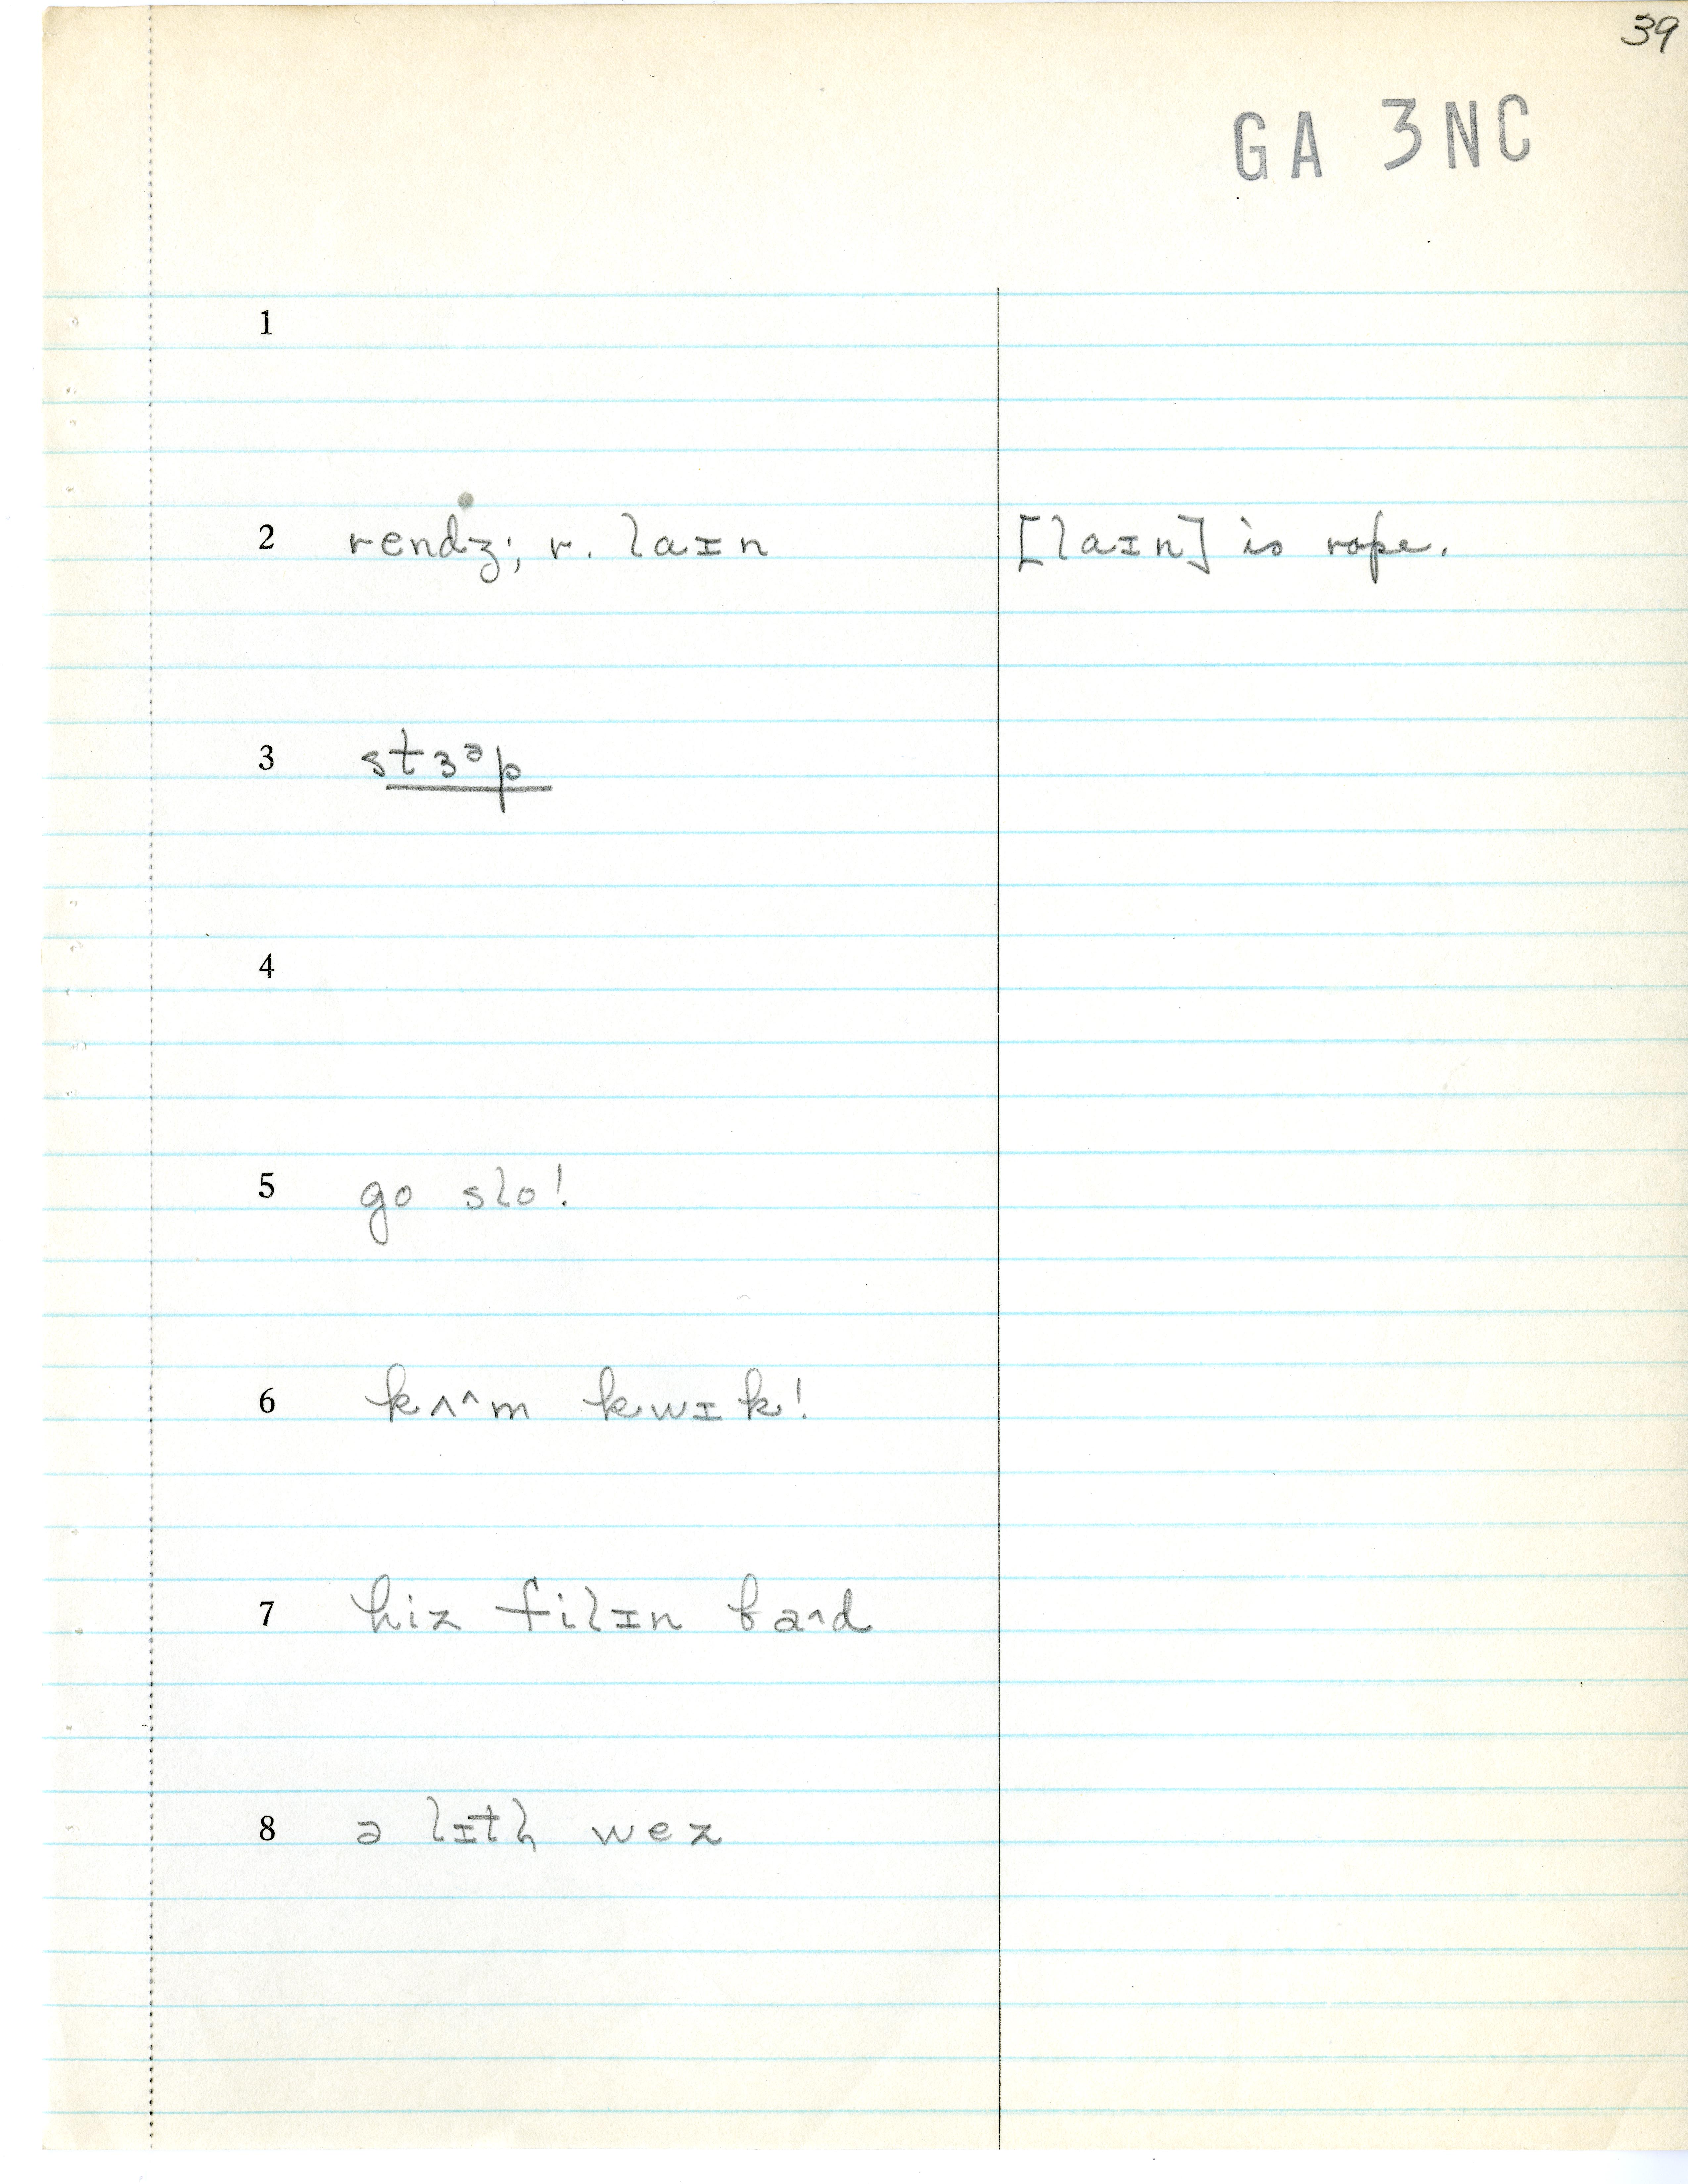 39
GA 3NC
1
2 rendʒ; r. laɪn [laɪn] is rope.
3 stɜᵊp
4
5 go slo!
6 kʌ^m kwɪk!
7 hiz filɪn ba^d
8 ə lɪtl̩ wez